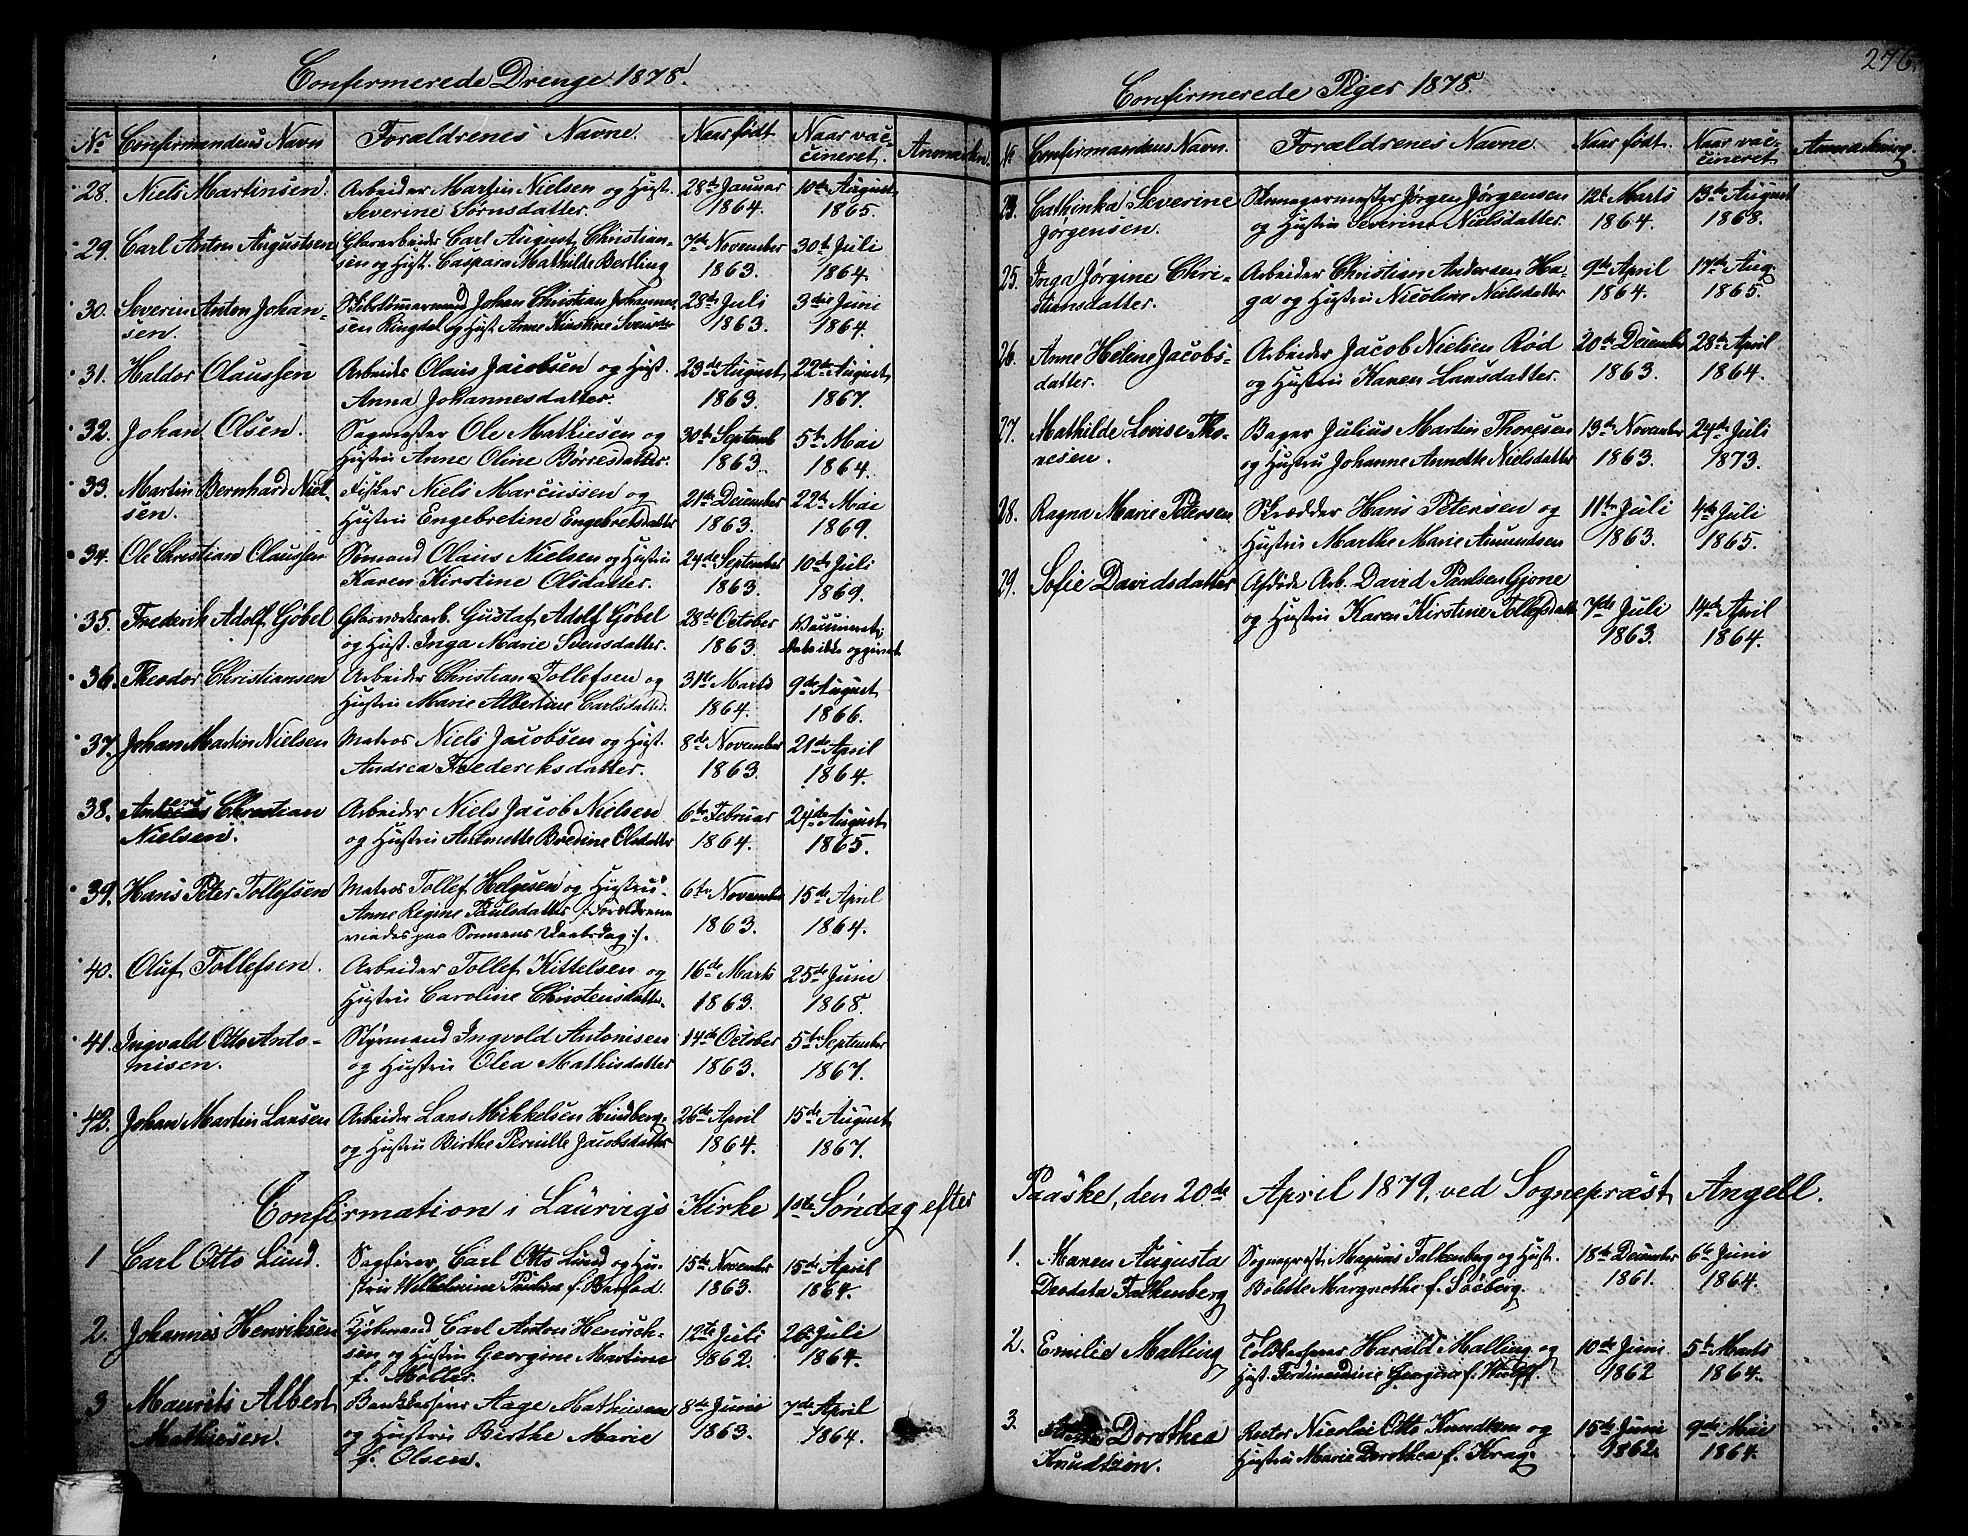 Confirmerede Drenge 1878.
No Confirmandens Navn Foraldrenes Navne. Naar født Naar vac-
cineret. Anmærkn.
28. Niels Martinsen. Arbeider Martin Nielsen og Hust. 28de Januar 10de August
Severine Sørnsdatter. 1864. 1865.
29. Carl Anton Augustsen Glasarbeider Carl August Christian- 7de November 30te Juli
sen og Hust. Caspara Mathilde Bertling 1863. 1864.
30. Severin Anton Johan- Johan Christian Johannes- 28de Juli 3die Juni
sen. sen Ringdal og Hust. Anne Kirstine 1863. 1864.
31. Haldor Olaussen Arbeider Olaus Jacobsen og Hust. 23de August 22de August
Anna Johannesdatter. 1863. 1867.
32. Johan Olsen. Sagmester Ole Mathiesen og 30te Septemb 5te Mai
Hustru Anne Oline Børresdatter. 1863. 1864.
33. Martin Bernhard Niel- Fisker Niels Marcussen og 21de December 22de Mai
sen. Hustru Engebretine Engebretsdatter 1863. 1869.
34. Ole Christian Olaussen Sømand Olaus Nielsen og Hustru 24de September 10de Juli
Karen Kirstine Olsdatter. 1863. 1869.
35. Frederik Adolf Göbel Glasværksarb. Gustaf Adolf Göbel 28de October Vaccineret,
og Hust. Inga Marie Svensdatter. 1863. Dato ikke opgivet
36. Theodor Christiansen Arbeider Christian Tollefsen og 31de Marts 9de August
Hustru Marie Albertine Carlsdatter. 1864. 1866.
37. Johan Martin Nielsen Matros Niels Jacobsen og Hust. 8de November 21de April
Andrea Frederiksdatter. 1863. 1864.
38. Christian Arbeider Niels Jacob Nielsen 6te Februar 24de August
Nielsen. og Hustru Annette Bredine Olsdatter 1864. 1865.
39. Hans Peter Tollefsen Matros Tollef Helgesen og Hustru 6te November 15de April
Anne Regine Paulsdatter /: Forældrene 1863. 1864.
viedes paa Sønnens Daabsdag :/.
40. Oluf Tollefsen. Arbeider Tollef Kittelsen og 16de Marts 25de Juni
Hustru Caroline Christensdatter. 1863. 1868.
41. Ingvald Otto Anto- Styrmand Ingvald Antonisen 14de October 5te September
nisen. og Hustru Olea Mathisdatter 1863. 1867.
42. Johan Martin Larsen Arbeider Lars Mikkelsen Hindberg 26de April 15de August
og Hustru Birthe Pernille Jacobsdatter 1864. 1867.
Confirmation i Laurvigs Kirke 1ste Søndag efter
1 Carl Otto Lund. Sagfører Carl Otto Lund og Hu- 15de November 15de April
stru Wilhelmine Pauline f. Barfod. 1863. 1864.
2. Johannes Henriksen Kjøbmand Carl Anton Henrich- 12te Juli 26. Juli
sen og Hustru Georgine Martine 1862. 1864.
f. Møller.
3 Maurits Albert Bankkasserer Aage Mathiesen 8de Juni 7de April
Mathiesen. og Hustru Birthe Marie 1863. 1864.
f. Olsen.
276.
Confirmerede Piger 1878.
No Confirmandens Navn. Forældrenes Navne. Naar født. Naar vac-
cineret. Anmærkning.
Cathinka Severine Jørgen Jørgensen 12te Marts 13de August
Jørgensen. og Hustru Severine Nielsdatter. 1864. 1868.
25. Inga Jørgine Chri- Arbeider Christian Andersen Ha- 9de April 17de Aug
stiansdatter. ga og Hustru Nicoline Nielsdatter 1864. 1865.
26. Anne Helene Jacobs- Arbeider Jacob Nielsen Rød 20de December 28de April
datter. og Hustru Karen Larsdatter. 1863. 1864.
27. Mathilde Lovise Tho- Bager Julius Martin Thoresen 13de November 24de Juli
resen. og Hustru Johanne Annette Nielsdatter 1863. 1873.
28. Ragna Marie Petersen. Skrædder Hans Petersen og 11te Juli 4de Juli
Hustru Marthe Marie Amundsen 1863. 1865.
29. Sofie Davidsdatter Afdøde Arb. David Paulsen Gjone
og Hustru Karen Kirstine Tollefsdatt. 7de Juli 14de April
1863. 1864.
Paaske, den 20de April 1879, ved Sognepræst Angell.
1. Maren Augusta Sognepræst Magnus Falkenberg og Hust. 18de December 6te Juni
Deodata Falkenberg Bolette Margrethe f. Søeberg. 1861. 1864.
2. Emilie Malling Toldkasserer Harald Malling og 10de Juni 5te Marts
Hust. Ferdinandine Georgine f. Wulff. 1862 1864.
3. Dorothea Rector Nicolai Otto Knudtzon og 15de Juni 9de Mai
Knudtzon. Hustru Marie Dorothea f. Krag. 1862. 1864.